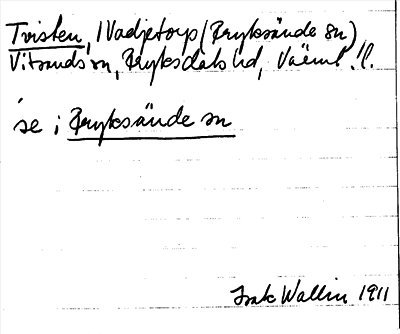 Tvisten, Nadjetorp (Fryksände sn)
Vitsands sn, Fryksdals hd, Värml. l.
se i Fryksände sn
Isak Wallin 1911